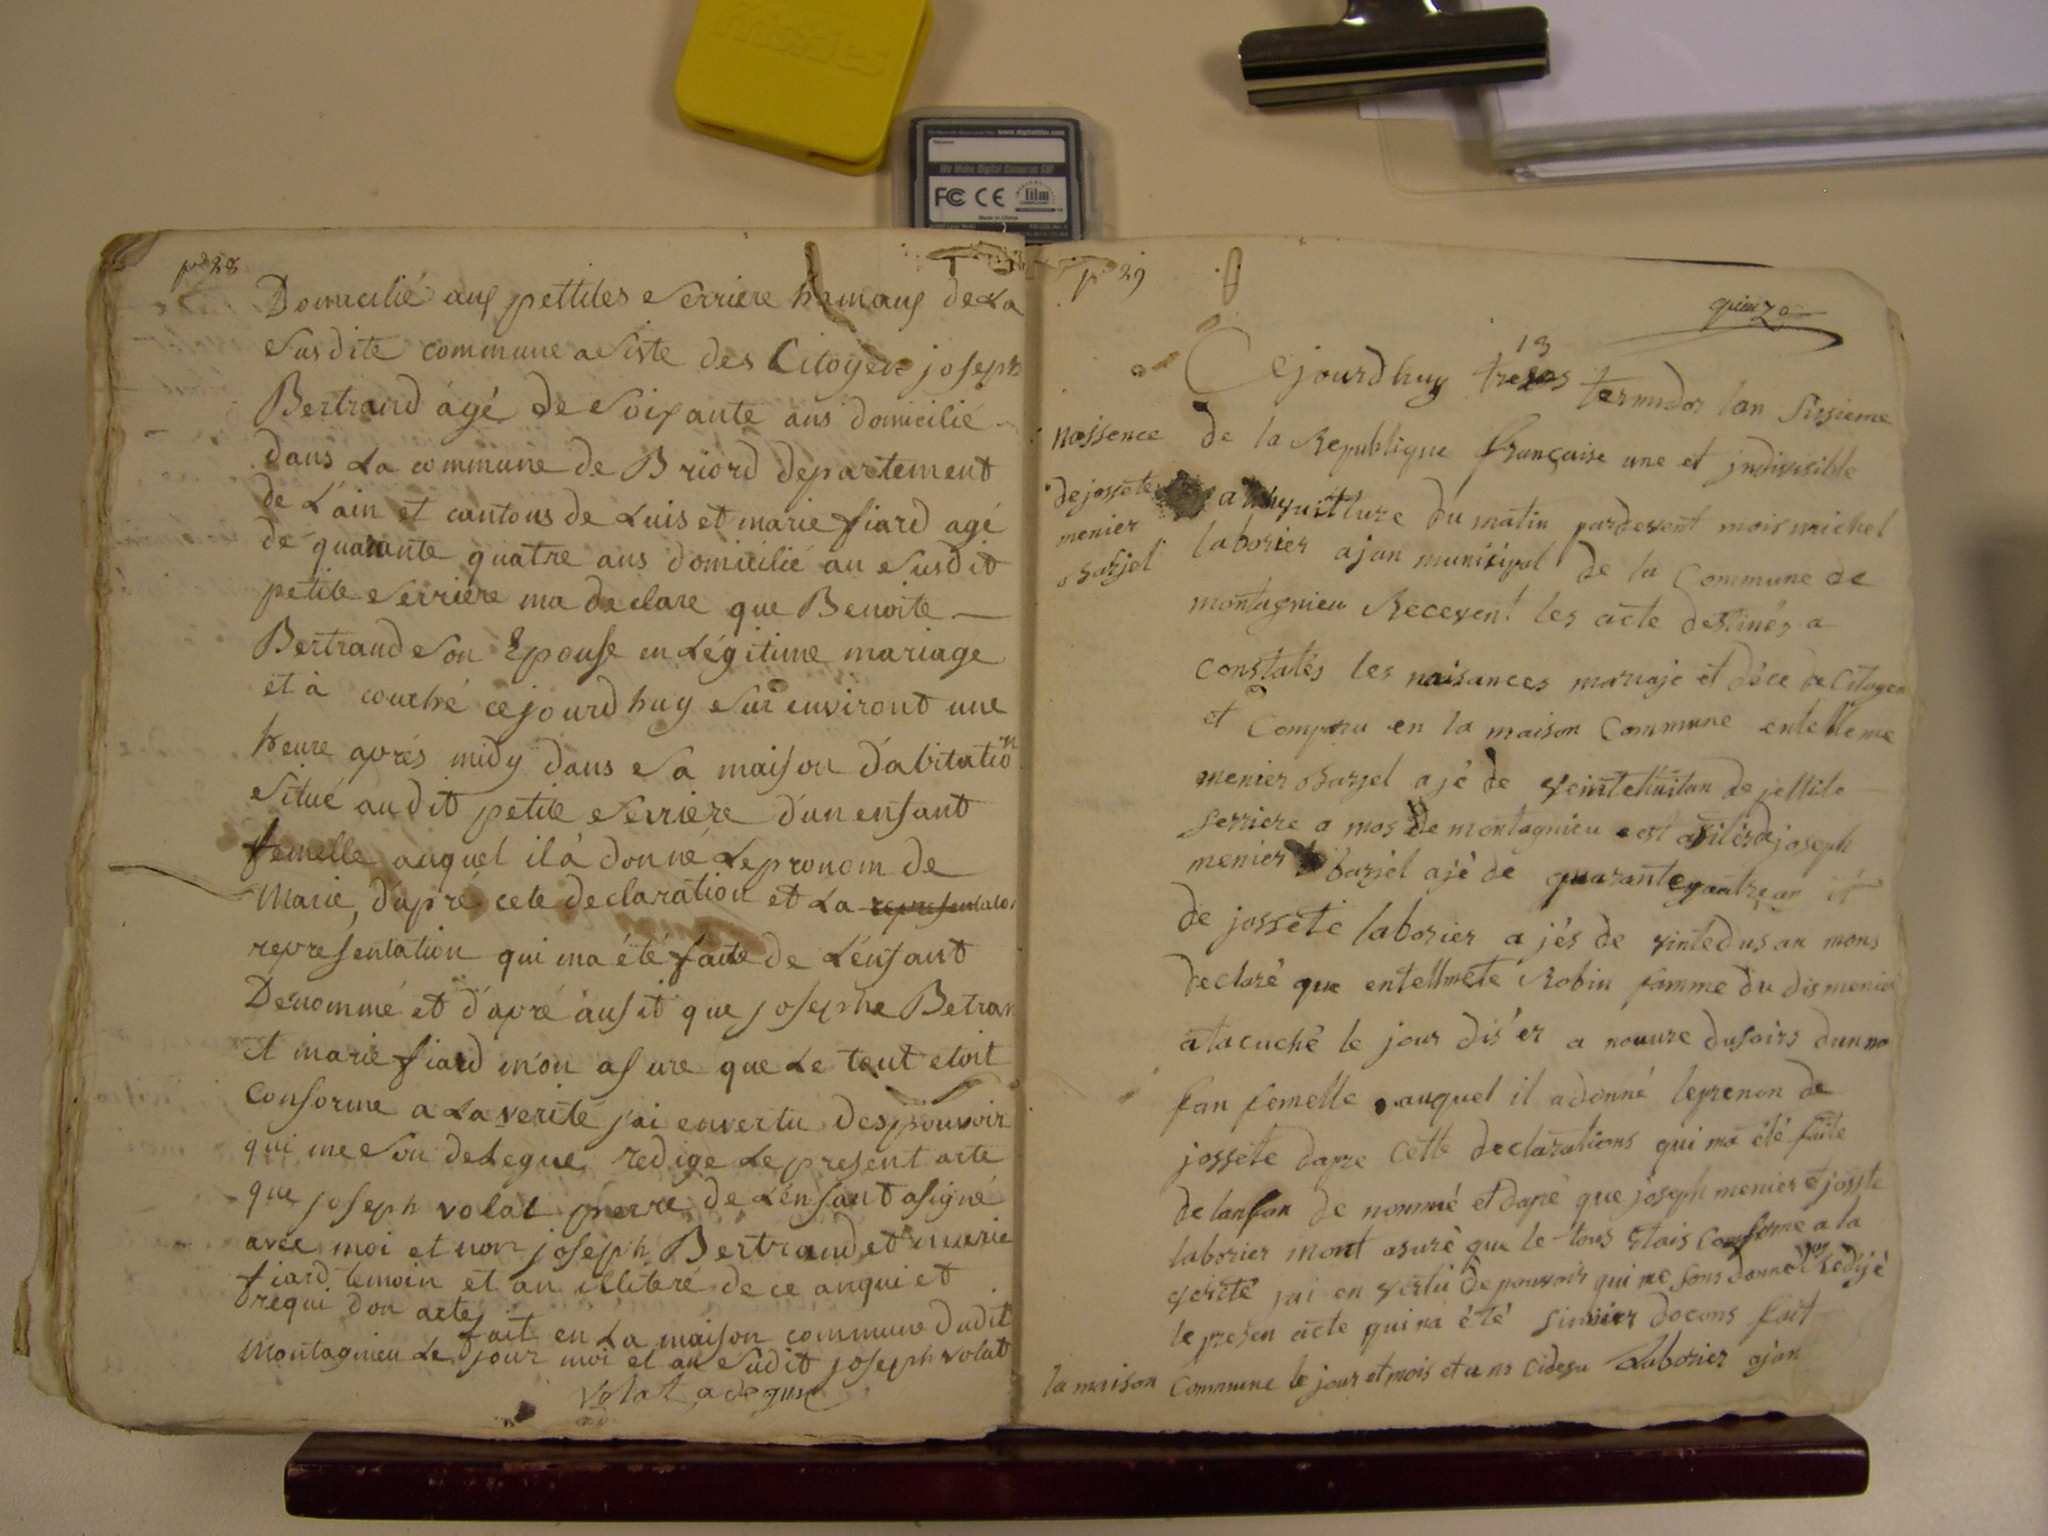 pe 28
Domicilié aux pettites Serriere hamaux de La
Susdite commune asiste des Citoyen joseph
Bertrand âgé de Soixante ans domicilié
dans La commune de Briord departement
de L'ain et cantons de Luis et marie fiard agé
de quarante quatre ans domicilié au Susdit
petite Serriere ma declare que Benoite
Bertrand Son Epouse en Légitime mariage
et à couché cejourdhuy Sur environt une
heure aprés midy dans Sa maison d'abitation
Situé audit petite Serriére d'un enfant
femelle auquel il à donné Le pronom de
Marie, d'apré cete declaration et La representation
representation qui ma été faite de L'enfant
Denommé et d'apré ausit que josephe Betran
et marie fiard m'on asure que Le tout etoit
Conforme a La verité j'ai envertu des pouvoir
qui me Son delegue redige Le present acte
que joseph volat pierre de L'enfant asigné
avec moi et non joseph Bertrand et marie
fiard temoin et an illiteré de ce anqui et
requi d'on acte
fait en La maison commune dudit
Montagnieu Le jour moi et an Sudit joseph volat
volat
p 29
quinze
13
Cejourdhuy treses termidor lan Sissieme
nassence
de josséte
menier
Barjel
de la Republique française une et jndivisible
a du matin pardevent moi michel
laborier ajan municipal de la Commune de
montagnieu Recevent les acte destinés a
Constatés les naisances mariaje et déce de Citoyen
et Comparu en la maison Commune entelleme
menier Barjel ajé de veintehuitan de pettite
Serriere a mos de montagnieu est asités de joseph
menier barjel ajé de quarantequatre an et
de josséte laborier a jés de vintedus an mons
declaré que entellmete Robin famme du dis menier
atacuché le jour dis'er a nouure dusoirs dunno
fan femelle auquel il adonné leprenon de
josséte dapre Cette declarations qui ma été faite
de lanfan de nommé et dapré que joseph menier e josste
laborier mont asuré que le tous etais Conforme a la
verité jai en vertu de pouvoir qui me sons donné rédijé
le presen acte qui na été Sinnier docons fait
la maison Commune le jour et mois et ans cidesu Laborier ajan
www.digitalfilm.com
We Make Digital Cameras Go!
FC CE
film
Made in China